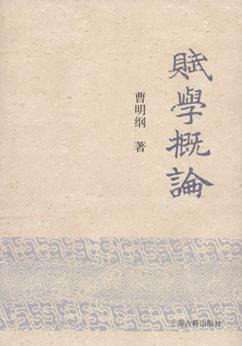 賦學概論
曹明纲 著
上海古籍出版社